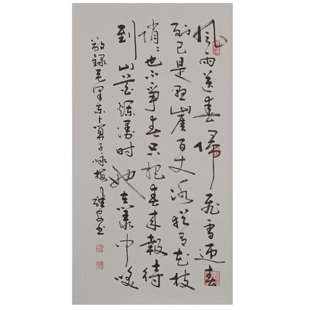 风雨送春归飞雪迎春
到已是悬崖百丈冰犹有花枝
俏俏也不争春只把春来报待
到山花烂漫时她在丛中笑
敬录毛泽东卜算子咏梅